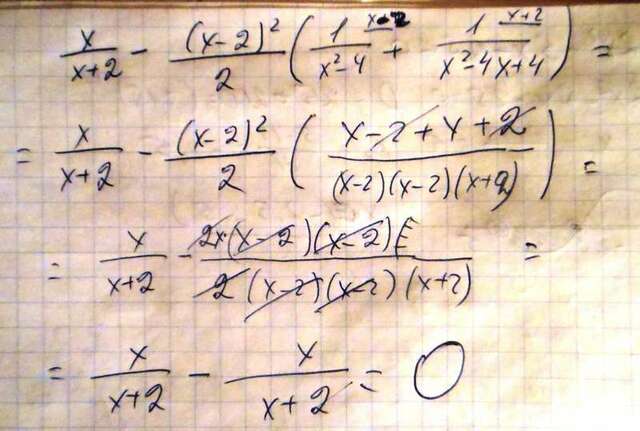 x/(x+2) - (x-2)²/2 (1/(x²-4) x-2 + 1/(x²-4x+4) x+2) =
= x/(x+2) - (x-2)²/2 ((x-2+x+2)/((x-2)(x-2)(x+2))) =
= x/(x+2) - 2x(x-2)(x-2)/(2(x-2)(x-2)(x+2)) =
= x/(x+2) - x/(x+2) = 0